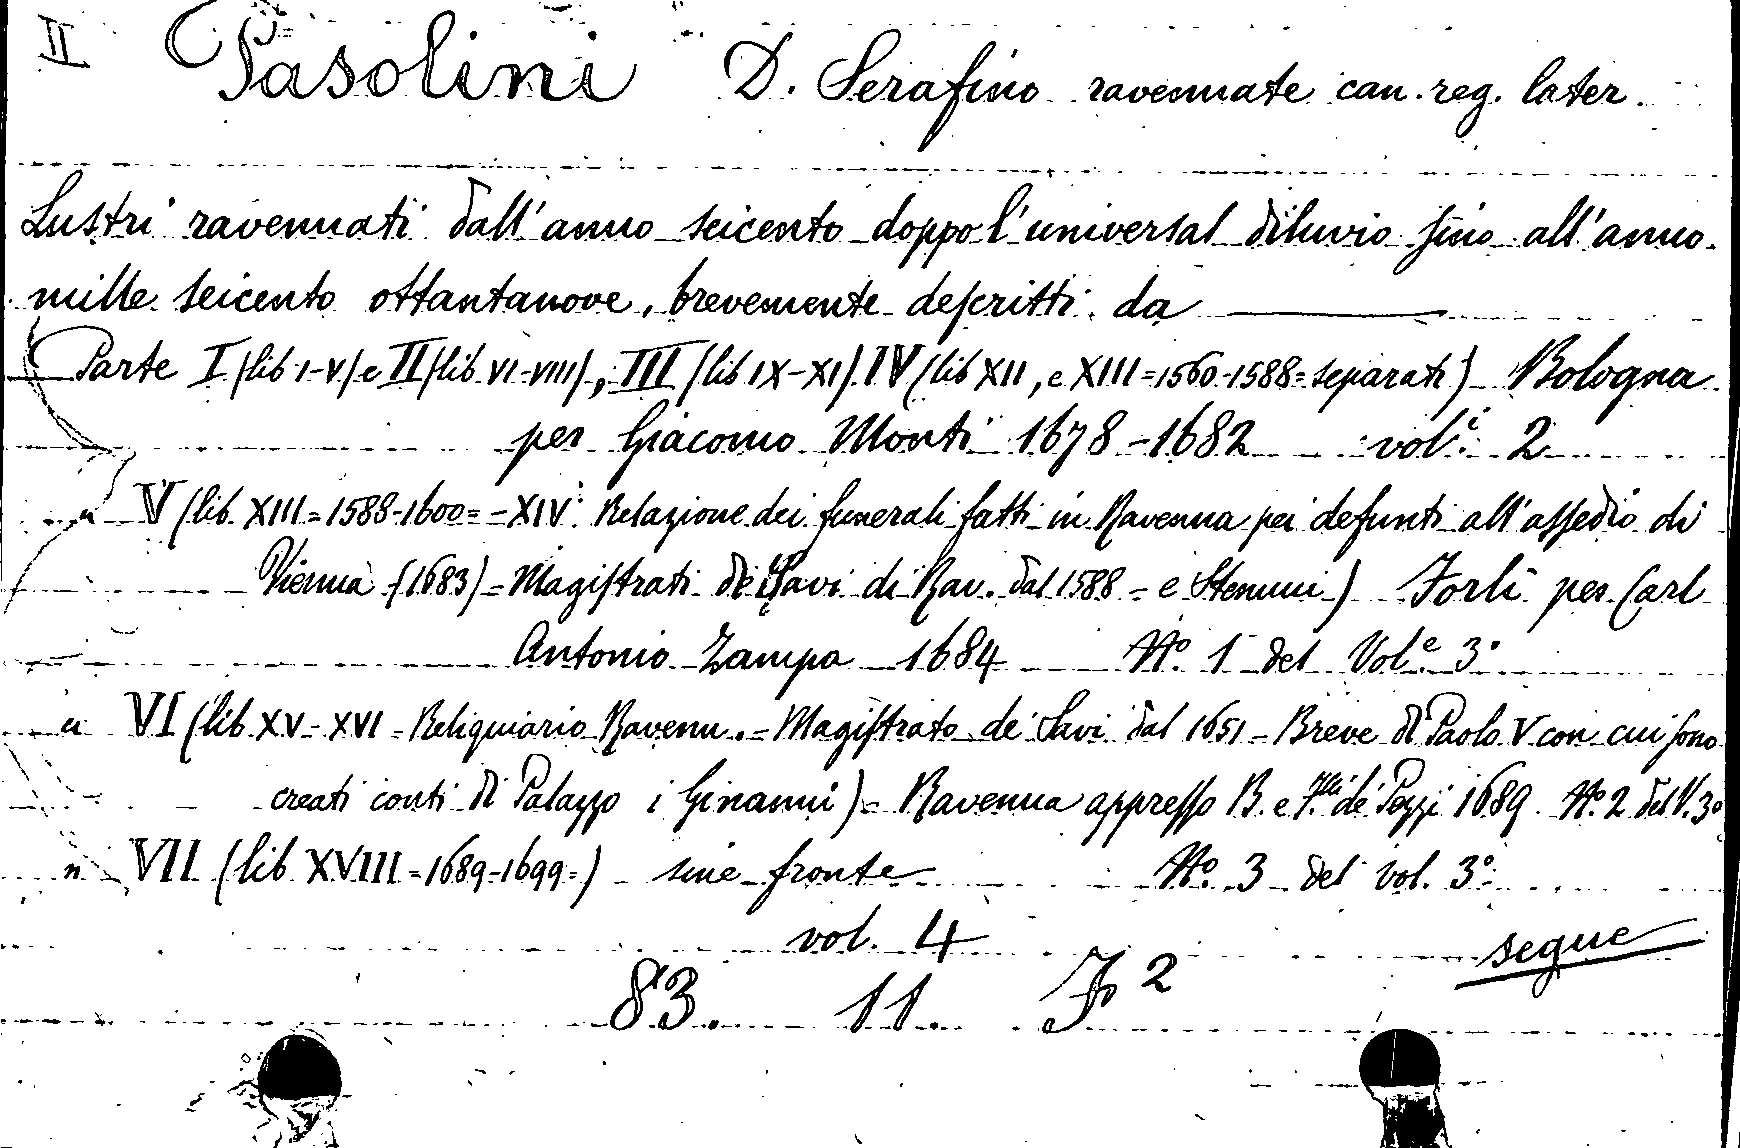 II Pasolini D. Serafino ravennate can. reg. later.
Lustri ravennati dall'anno seicento doppo l'universal diluvio fino all'anno
mille seicento ottantanove, brevemente descritti da ———
Parte I (lib I-V) e II (lib VI-VIII), III (lib IX-XI) IV (lib XII, e XIII=1560-1588=separati) Bologna
per Giacomo Monti 1678-1682 vol.i 2
" V (lib. XIII=1588-1600=-XIV. Relazione dei funerali fatti in Ravenna pei defunti all'assedio di
Vienna (1683)=Magistrati de Savi di Rav. dal 1588 - e Stemmi) Forlì per Carl
Antonio Zampa 1684 No. 1 del Vol.e 3o
" VI (lib XV-XVI-Reliquiario Ravenn.-Magistrato de' Savi dal 1651-Breve di Paolo V con cui sono
creati conti di Palazzo i Ginanni)= Ravenna appresso B. e F.lli de' Pezzi 1689. No. 2 del V. 3o
" VII (lib XVIII=1689-1699=) sine fronte No. 3 del vol. 3o
vol. 4
segue
83. 11. F 2